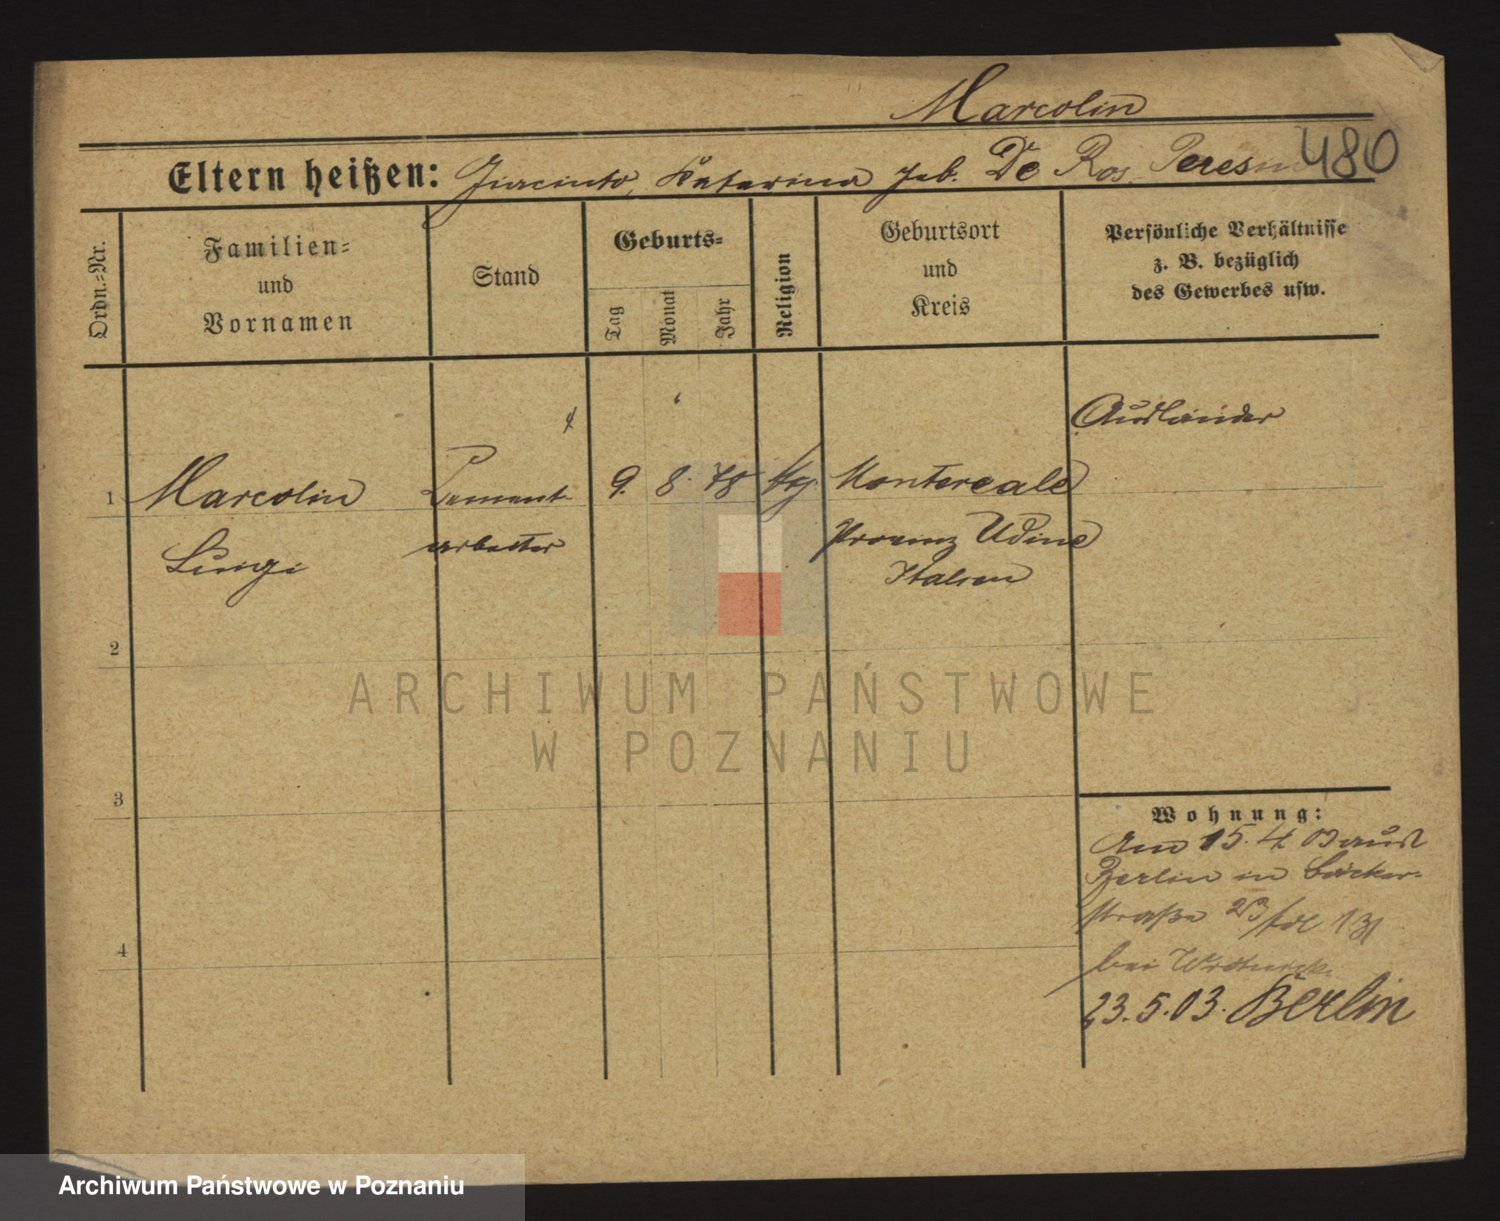 Marcolin
480
Eltern heißen: Giacinto, Katarina geb. De Ros
Ordn.=Nr.
Familien=
und
Vornamen
Stand
Geburts=
Tag
Monat
Jahr
Religion
Geburtsort
und
Kreis
Persönliche Verhältnisse
z. B. bezüglich
des Gewerbes usw.
Ausländer
1 Marcolin Cement- 9. 8. 78 kg. Montereale
arbeiter Provinz Udine
Luigi Italien
2
3
4
Wohnung:
Am 15. 4. 03 aus
Berlin in Bäcker-
straße 23
bei
23.5.03. Berlin
ARCHIWUM PAŃSTWOWE
W POZNANIU
Archiwum Państwowe w Poznaniu